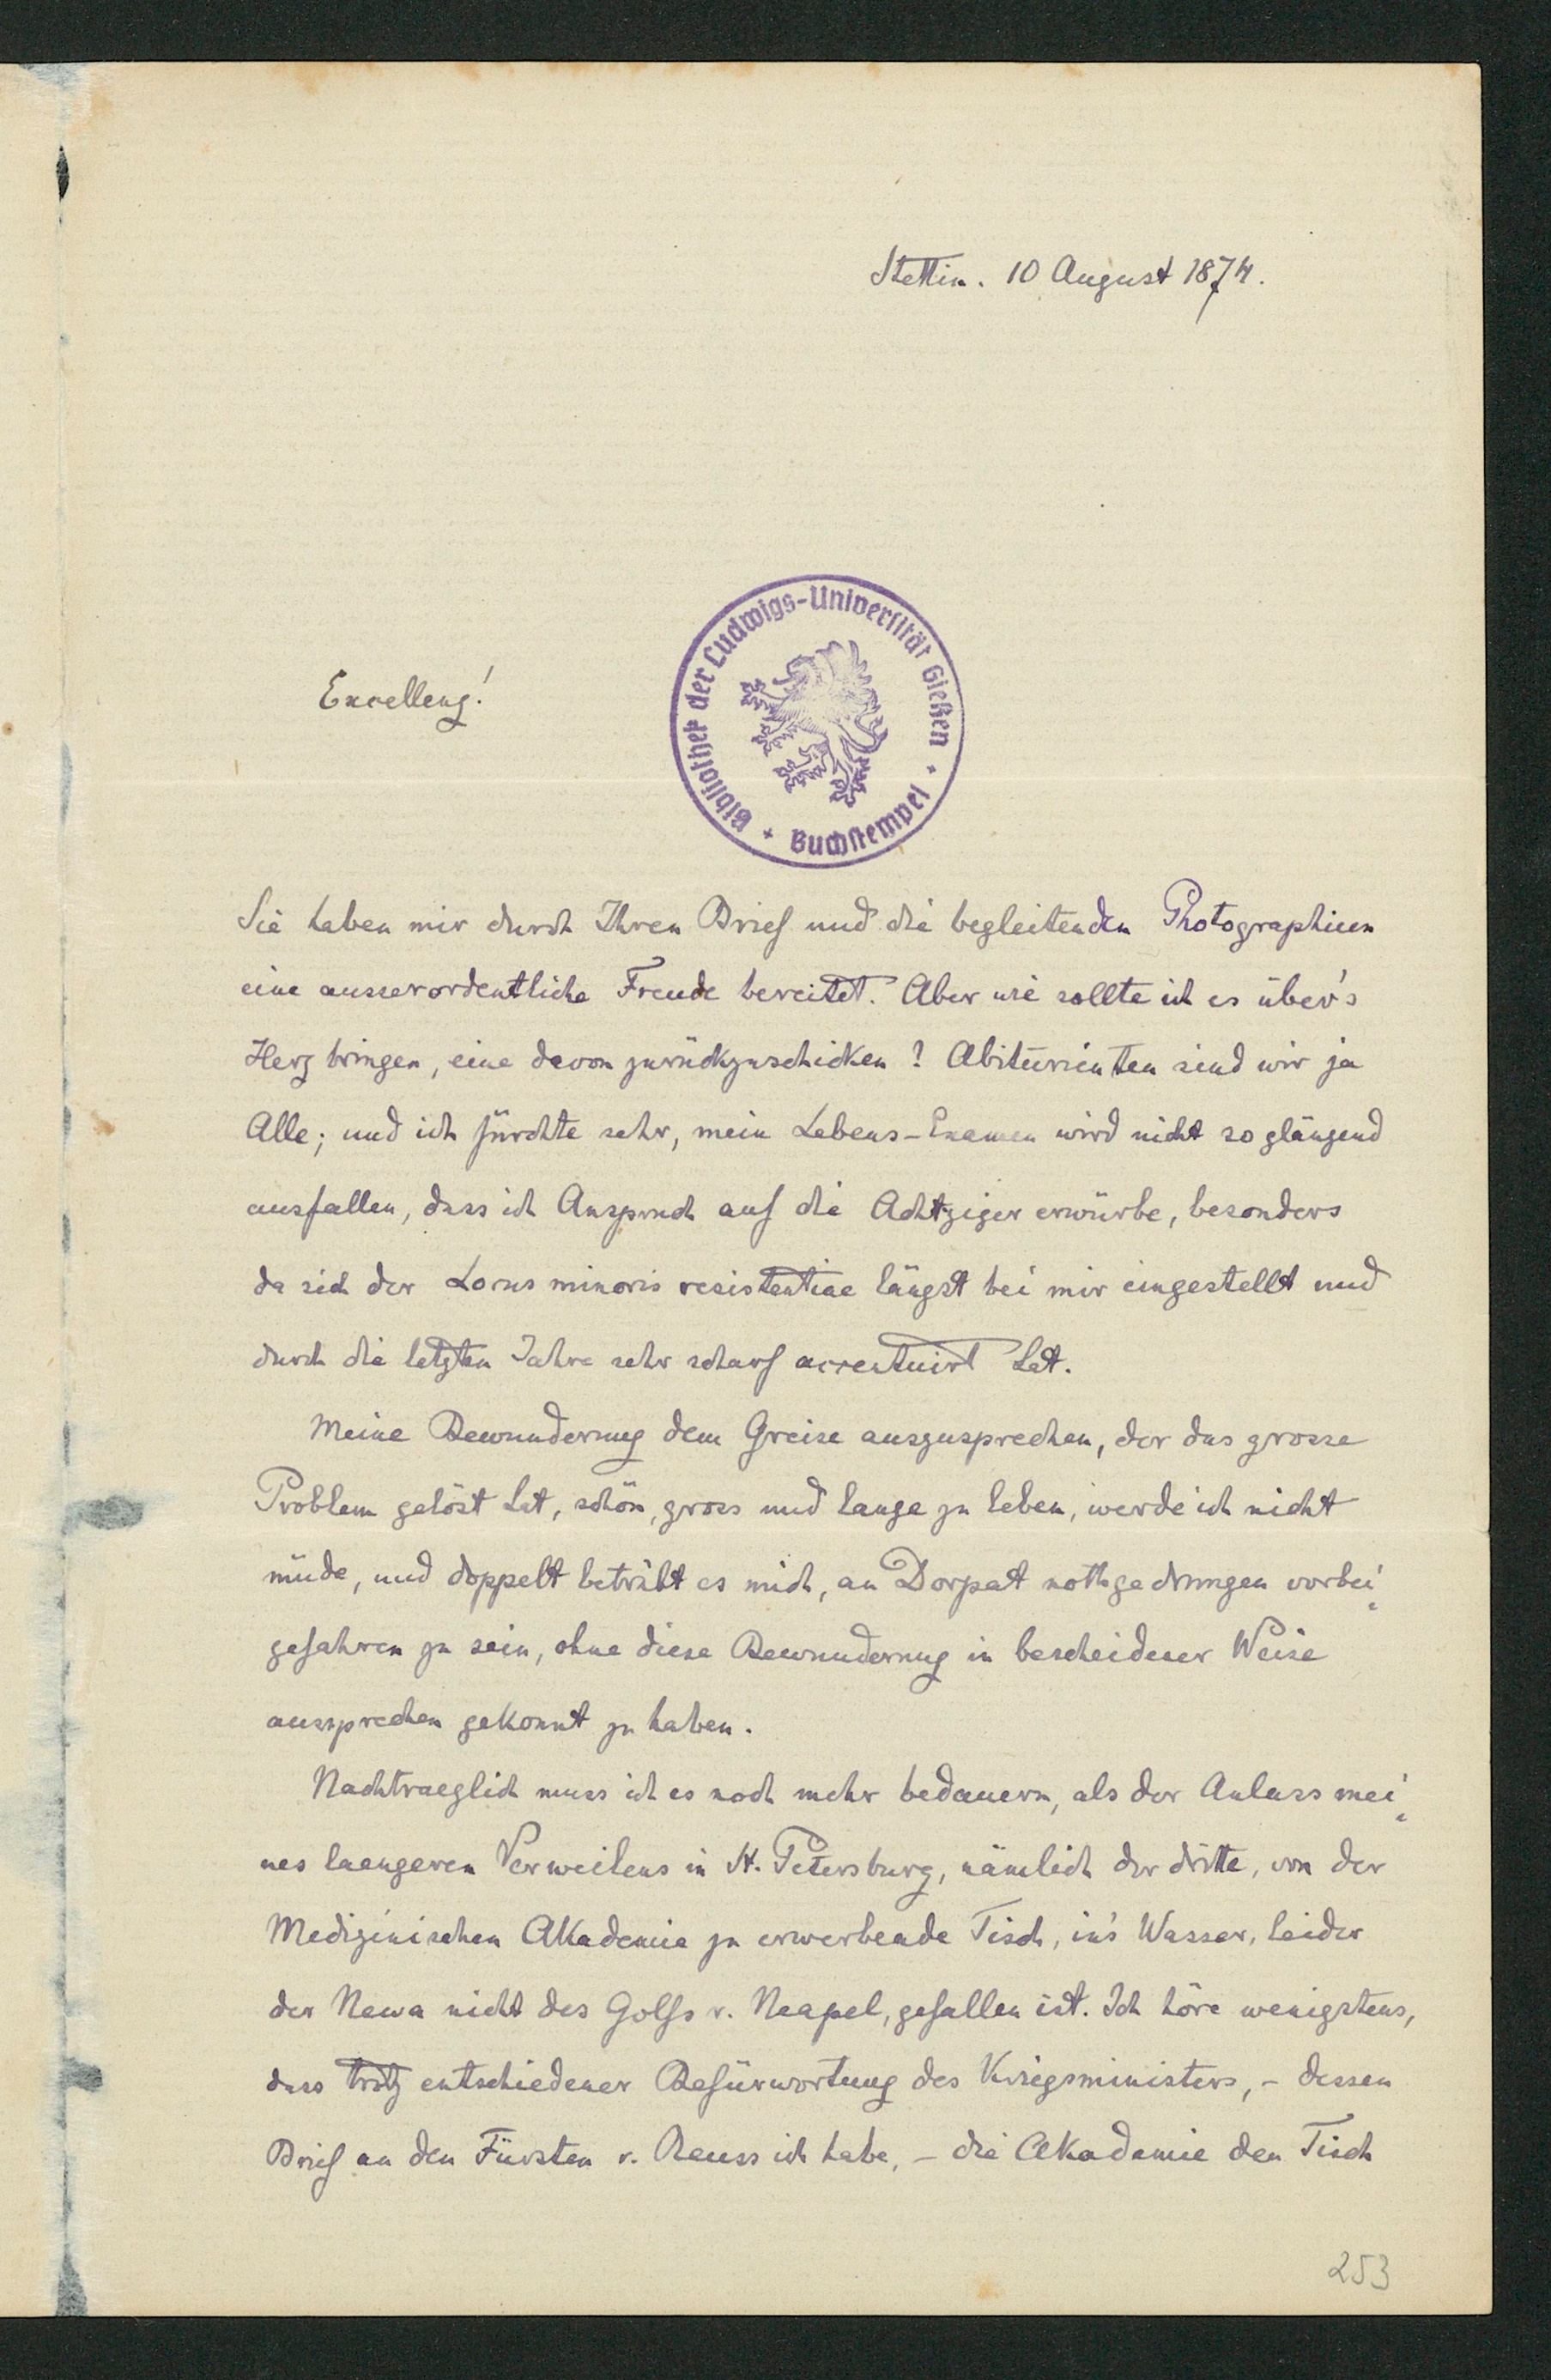 Stettin. 10 August 1874.
Bibliothek der Ludwigs-Universität Gießen
+ Buchstempel +
Excellenz!
Sie haben mir durch Ihren Brief und die begleitenden Photographieen
eine ausserordentliche Freude bereitet. Aber wie sollte ich es über's
Herz bringen, eine davon zurückzuschicken? Abiturienten sind wir ja
Alle; und ich fürchte sehr, mein Lebens-Examen wird nicht so glänzend
ausfallen, dass ich Anspruch auf die Achtziger erwürbe, besonders
da sich der Locus minoris resistentiae längst bei mir eingestellt und
durch die letzten Jahre sehr scharf accentuirt hat.
Meine Bewunderung dem Greise auszusprechen, der das grosse
Problem gelöst hat, schön, gross und lange zu leben, werde ich nicht
müde, und doppelt betrübt es mich, an Dorpat nothgedrungen vorbei-
gefahren zu sein, ohne diese Bewunderung in bescheidener Weise
aussprechen gekonnt zu haben.
Nachtraeglich muss ich es noch mehr bedauern, als der Anlass mei-
nes laengeren Verweilens in St. Petersburg, nämlich der dritte, von der
Medizinischen Akademie zu erwerbende Tisch, in's Wasser, leider
der Newa nicht des Golfs v. Neapel, gefallen ist. Ich höre wenigstens,
dass trotz entschiedener Befürwortung des Kriegsministers, - dessen
Brief an den Fürsten v. Reuss ich habe, - die Akademie den Tisch
253